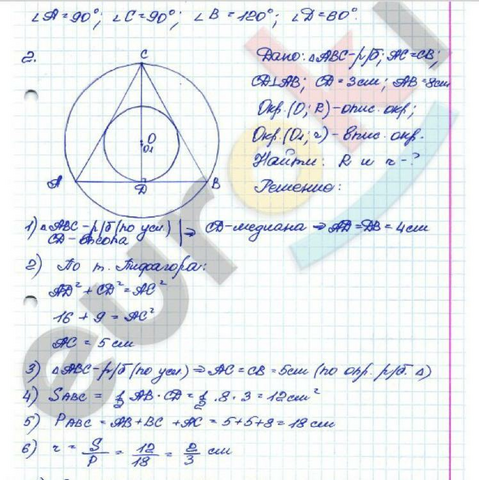 ∠A=90°; ∠C=90°; ∠B=120°; ∠D=60°.
2.
C
O
O₁
A
D
B
Дано: △ABC-р/б; AC=CB;
CD⊥AB; CD=3см; AB=8см
Окр.(O; R)-опис. окр.;
Окр.(O₁; r)-впис. окр.
Найти: R и r-?
Решение:
1) △ABC-р/б (по усл) | ⇒ CD-медиана ⇒ AD=DB=4см
CD-высота
2) По т. Пифагора:
AD²+CD²=AC²
16+9=AC²
AC=5см
3) △ABC-р/б (по усл) ⇒ AC=CB=5см (по опр. р/б △)
4) SABC = 1/2 AB·CD = 1/2·8·3=12см²
5) PABC = AB+BC+AC=5+5+8=18см
6) r = S/P = 12/18 = 2/3 см
euroki